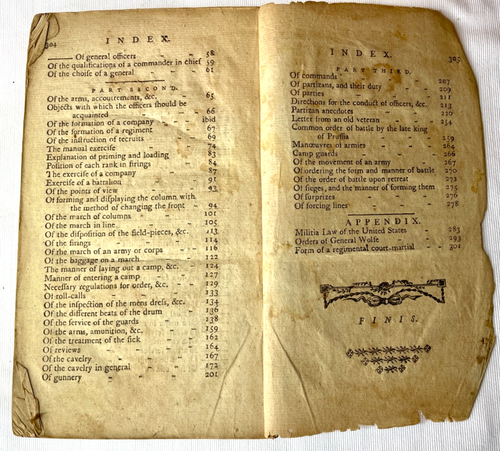 304 INDEX.
Of general officers - 58
Of the qualifications of a commander in chief 59
Of the choise of a general - 61
PART SECOND.
Of the arms, accoutrements, &c. 65
Objects with which the officers should be
acquainted - 66
Of the formation of a company - ibid
Of the formation of a regiment - 67
Of the instruction of recruits - 69
The manual exercise - 74
Explanation of priming and loading 83
Position of each rank in firings 84
The exercise of a company - 87
Exercise of a battalion - 91
Of the points of view - 93
Of forming and displaying the column, with
the method of changing the front - 94
Of the march of columns - 101
Of the march in line. - 105
Of the disposition of the field-pieces, &c. 113
Of the firings - 114
Of the march of an army or corps - 116
Of the baggage on a march - 122
The manner of laying out a camp, &c. 124
Manner of entering a camp - 127
Necessary regulations for order, &c. 129
Of roll-calls - 133
Of the inspection of the mens dress, &c. 134
Of the different beats of the drum - 136
Of the service of the guards - 138
Of the arms, amunition, &c. - 159
Of the treatment of the sick - 162
Of reviews - 164
Of the cavelry - 167
Of the cavelry in general - 172
Of gunnery - 201
INDEX. 305
PART THIRD.
Of commands - 207
Of partizans, and their duty - 209
Of parties - 211
Directions for the conduct of officers, &c. 213
Partizan anecdotes - 220
Letter from an old veteran - 254
Common order of battle by the late king
of Prussia - 259
Manœuvres of armies - 264
Camp guards - 266
Of the movement of an army - 267
Of ordering the form and manner of battle 270
Of the order of battle upon retreat 272
Of sieges, and the manner of forming them 275
Of surprizes - 276
Of forcing lines - 278
APPENDIX.
Militia Law of the United States - 283
Orders of General Wolfe - 293
Form of a regimental court-martial - 301
FINIS.